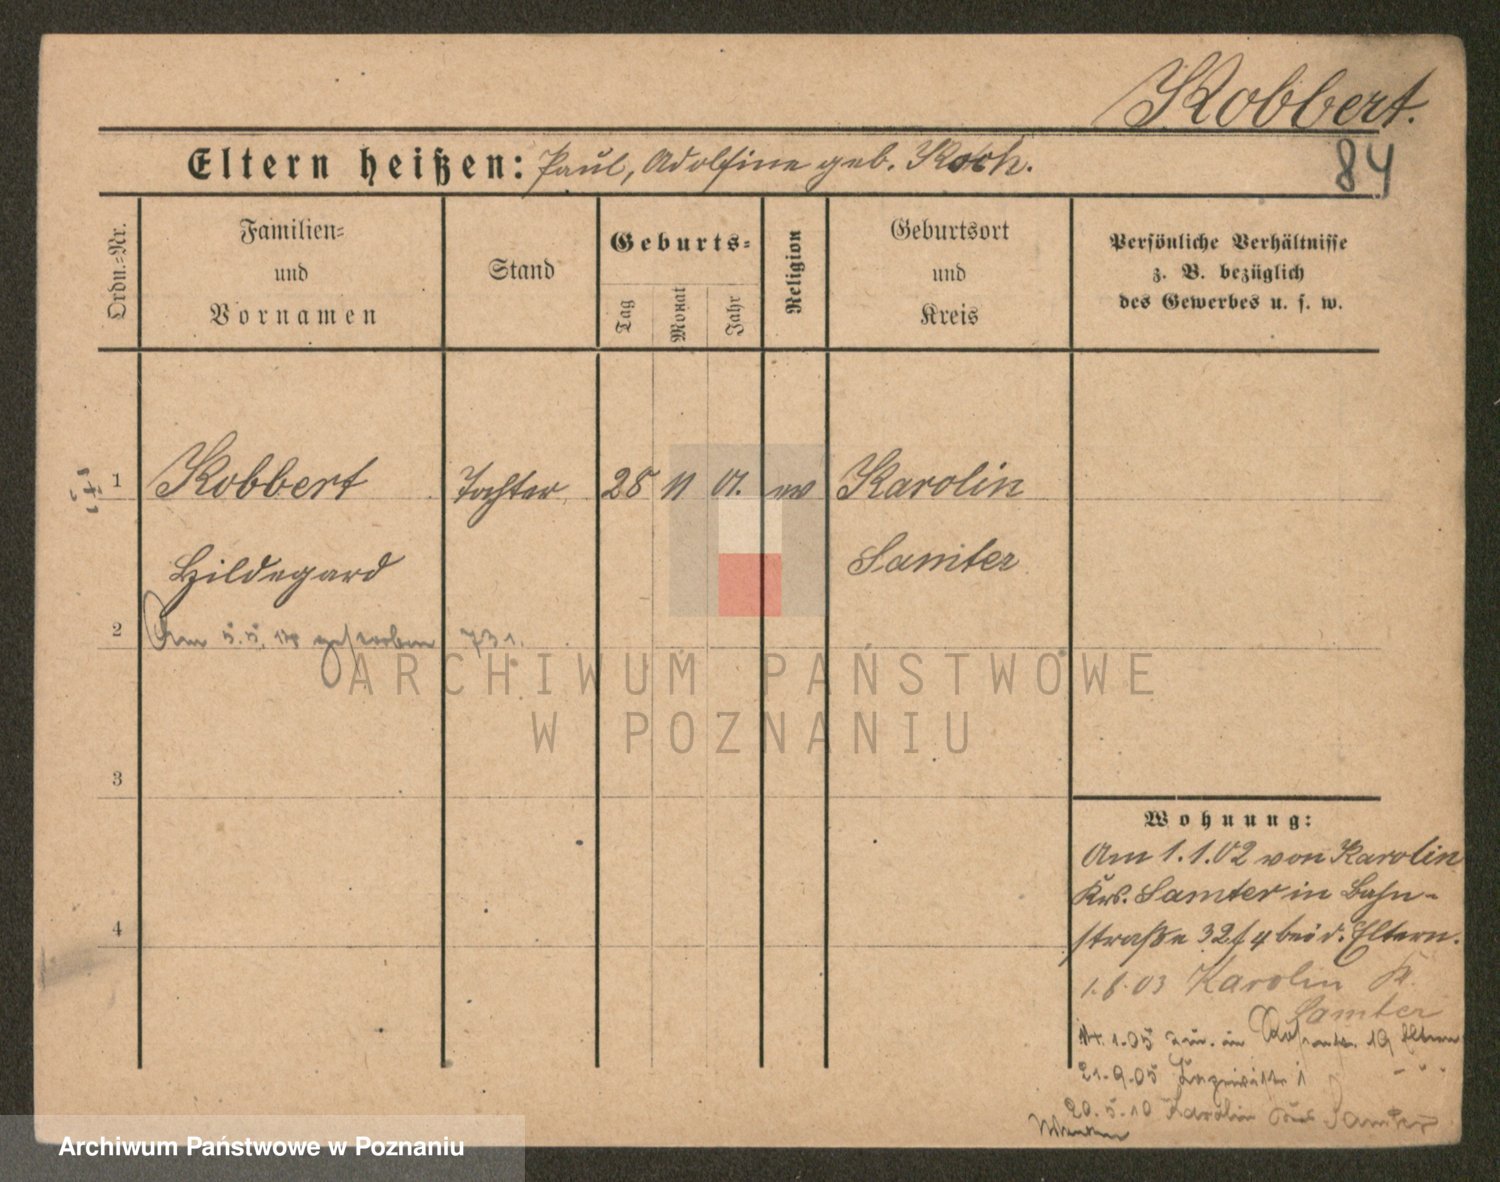 Kobbert.
Eltern heißen: Paul, Adolfine geb. Koch.
84
Ordn.=Nr.
Familien=
und
Vornamen
Stand
Geburts=
Tag
Monat
Jahr
Religion
Geburtsort
und
Kreis
Persönliche Verhältnisse
z. B. bezüglich
des Gewerbes u. s. w.
1
Kobbert Tochter 28 11 01. ev Karolin
Hildegard Samter
2
Am 5.5. gestorben 731.
3
4
Wohnung:
Am 1.1.02 von Karolin
Krs. Samter in Bahn-
straße 32/4 bei d. Eltern.
1.6.03 Karolin K.
Samter
14.1.05 zur. in 19 Eltern
21.9.05 1 - " "
20.5.10 Karolin Samter
ARCHIWUM PAŃSTWOWE
W POZNANIU
Archiwum Państwowe w Poznaniu